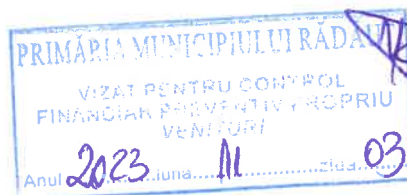 PRIMĂRIA MUNICIPIULUI RĂDĂU
VIZAT PENTRU CONTROL
FINANCIAR PREVENTIV PROPRIU
VENITURI
Anul 2023 luna 11 ziua 03